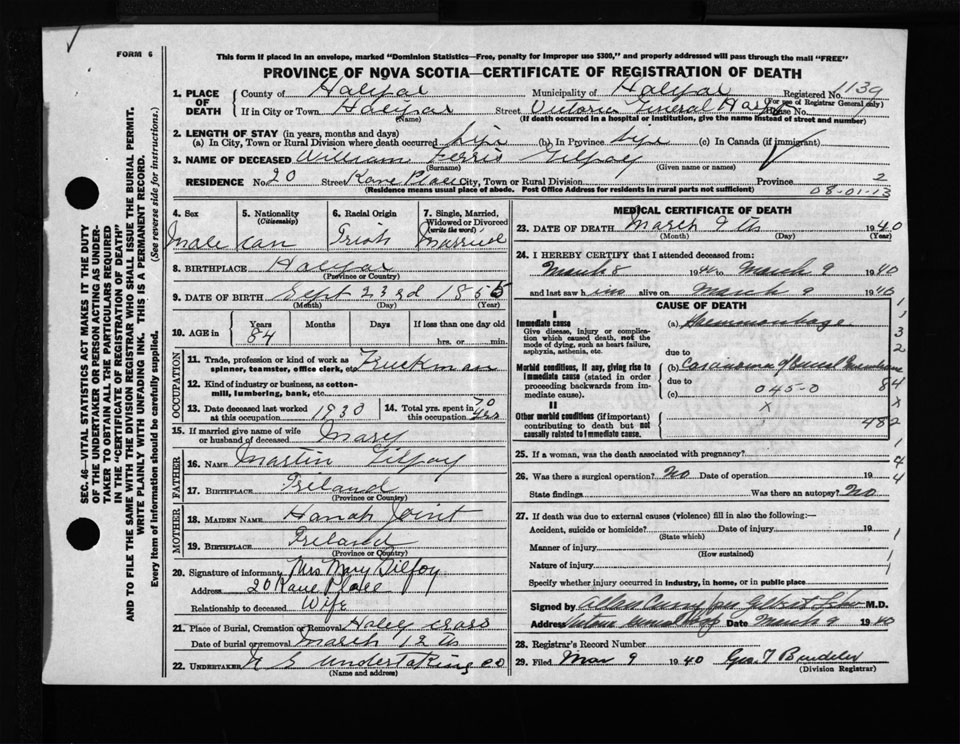 FORM 6
This form if placed in an envelope, marked "Dominion Statistics—Free, penalty for improper use $300," and properly addressed will pass through the mail "FREE"
PROVINCE OF NOVA SCOTIA—CERTIFICATE OF REGISTRATION OF DEATH
SEC. 46—VITAL STATISTICS ACT MAKES IT THE DUTY
OF THE UNDERTAKER OR PERSON ACTING AS UNDER-
TAKER TO OBTAIN ALL THE PARTICULARS REQUIRED
IN THE "CERTIFICATE OF REGISTRATION OF DEATH"
AND TO FILE THE SAME WITH THE DIVISION REGISTRAR WHO SHALL ISSUE THE BURIAL PERMIT.
WRITE PLAINLY WITH UNFADING INK. THIS IS A PERMANENT RECORD.
Every item of information should be carefully supplied. (See reverse side for instructions.)
1. PLACE OF DEATH County of Halifax Municipality of Halifax Registered No. 1139
(For use of Registrar General only)
If in City or Town Halifax Street Victoria General Hosp House No.
(Name) (If death occurred in a hospital or institution, give the name instead of street and number)
2. LENGTH OF STAY (in years, months and days)
(a) In City, Town or Rural Division where death occurred life (b) In Province life (c) In Canada (if immigrant)
3. NAME OF DECEASED William Ferris Gilfoy
(Surname) (Given name or names)
RESIDENCE No. 20 Street Kane Place City, Town or Rural Division Province 2
(Residence means usual place of abode. Post Office Address for residents in rural parts not sufficient) 08-01-13
4. Sex 5. Nationality (Citizenship) 6. Racial Origin 7. Single, Married, Widowed or Divorced (write the word)
Male Can Irish Married
8. BIRTHPLACE Halifax
(Province or Country)
9. DATE OF BIRTH Sept 23rd 1855
(Month) (Day) (Year)
10. AGE in Years Months Days If less than one day old
84 hrs. or min.
OCCUPATION
11. Trade, profession or kind of work as spinner, teamster, office clerk, etc. Truckman
12. Kind of industry or business, as cotton-mill, lumbering, bank, etc.
13. Date deceased last worked at this occupation 1930 14. Total yrs. spent in this occupation 70 yrs
15. If married give name of wife or husband of deceased Mary
FATHER
16. NAME Martin Gilfoy
17. BIRTHPLACE Ireland
(Province or Country)
MOTHER
18. MAIDEN NAME Hanah Joint
19. BIRTHPLACE Ireland
(Province or Country)
20. Signature of informant Mrs Mary Gilfoy
Address 20 Kane Place
Relationship to deceased Wife
21. Place of Burial, Cremation or Removal Holey Cross
Date of burial or removal March 12th
22. UNDERTAKER N S Undertaking Co
(Name and address)
MEDICAL CERTIFICATE OF DEATH
23. DATE OF DEATH March 9th 1940
(Month) (Day) (Year)
24. I HEREBY CERTIFY that I attended deceased from:
March 8 1940 to March 9 1940
and last saw him alive on March 9 1940
CAUSE OF DEATH
I
Immediate cause
Give disease, injury or complication which caused death, not the mode of dying, such as heart failure, asphyxia, asthenia, etc.
(a) Haemorrhage
due to
Morbid conditions, if any, giving rise to immediate cause (stated in order proceeding backwards from immediate cause).
(b) Carcinoma of
due to 045-0
(c) x
II
Other morbid conditions (if important) contributing to death but not causally related to immediate cause.
1
1
3
2
84
x
482
1
4
4
1
1
25. If a woman, was the death associated with pregnancy?
26. Was there a surgical operation? No Date of operation 19
State findings Was there an autopsy? No
27. If death was due to external causes (violence) fill in also the following:—
Accident, suicide or homicide? Date of injury 19
(State which)
Manner of injury
(How sustained)
Nature of injury
Specify whether injury occurred in industry, in home, or in public place
Signed by Allan M.D.
Address Victoria General Hosp Date March 9 1940
28. Registrar's Record Number
29. Filed Mar 9 1940 Geo. T
(Division Registrar)